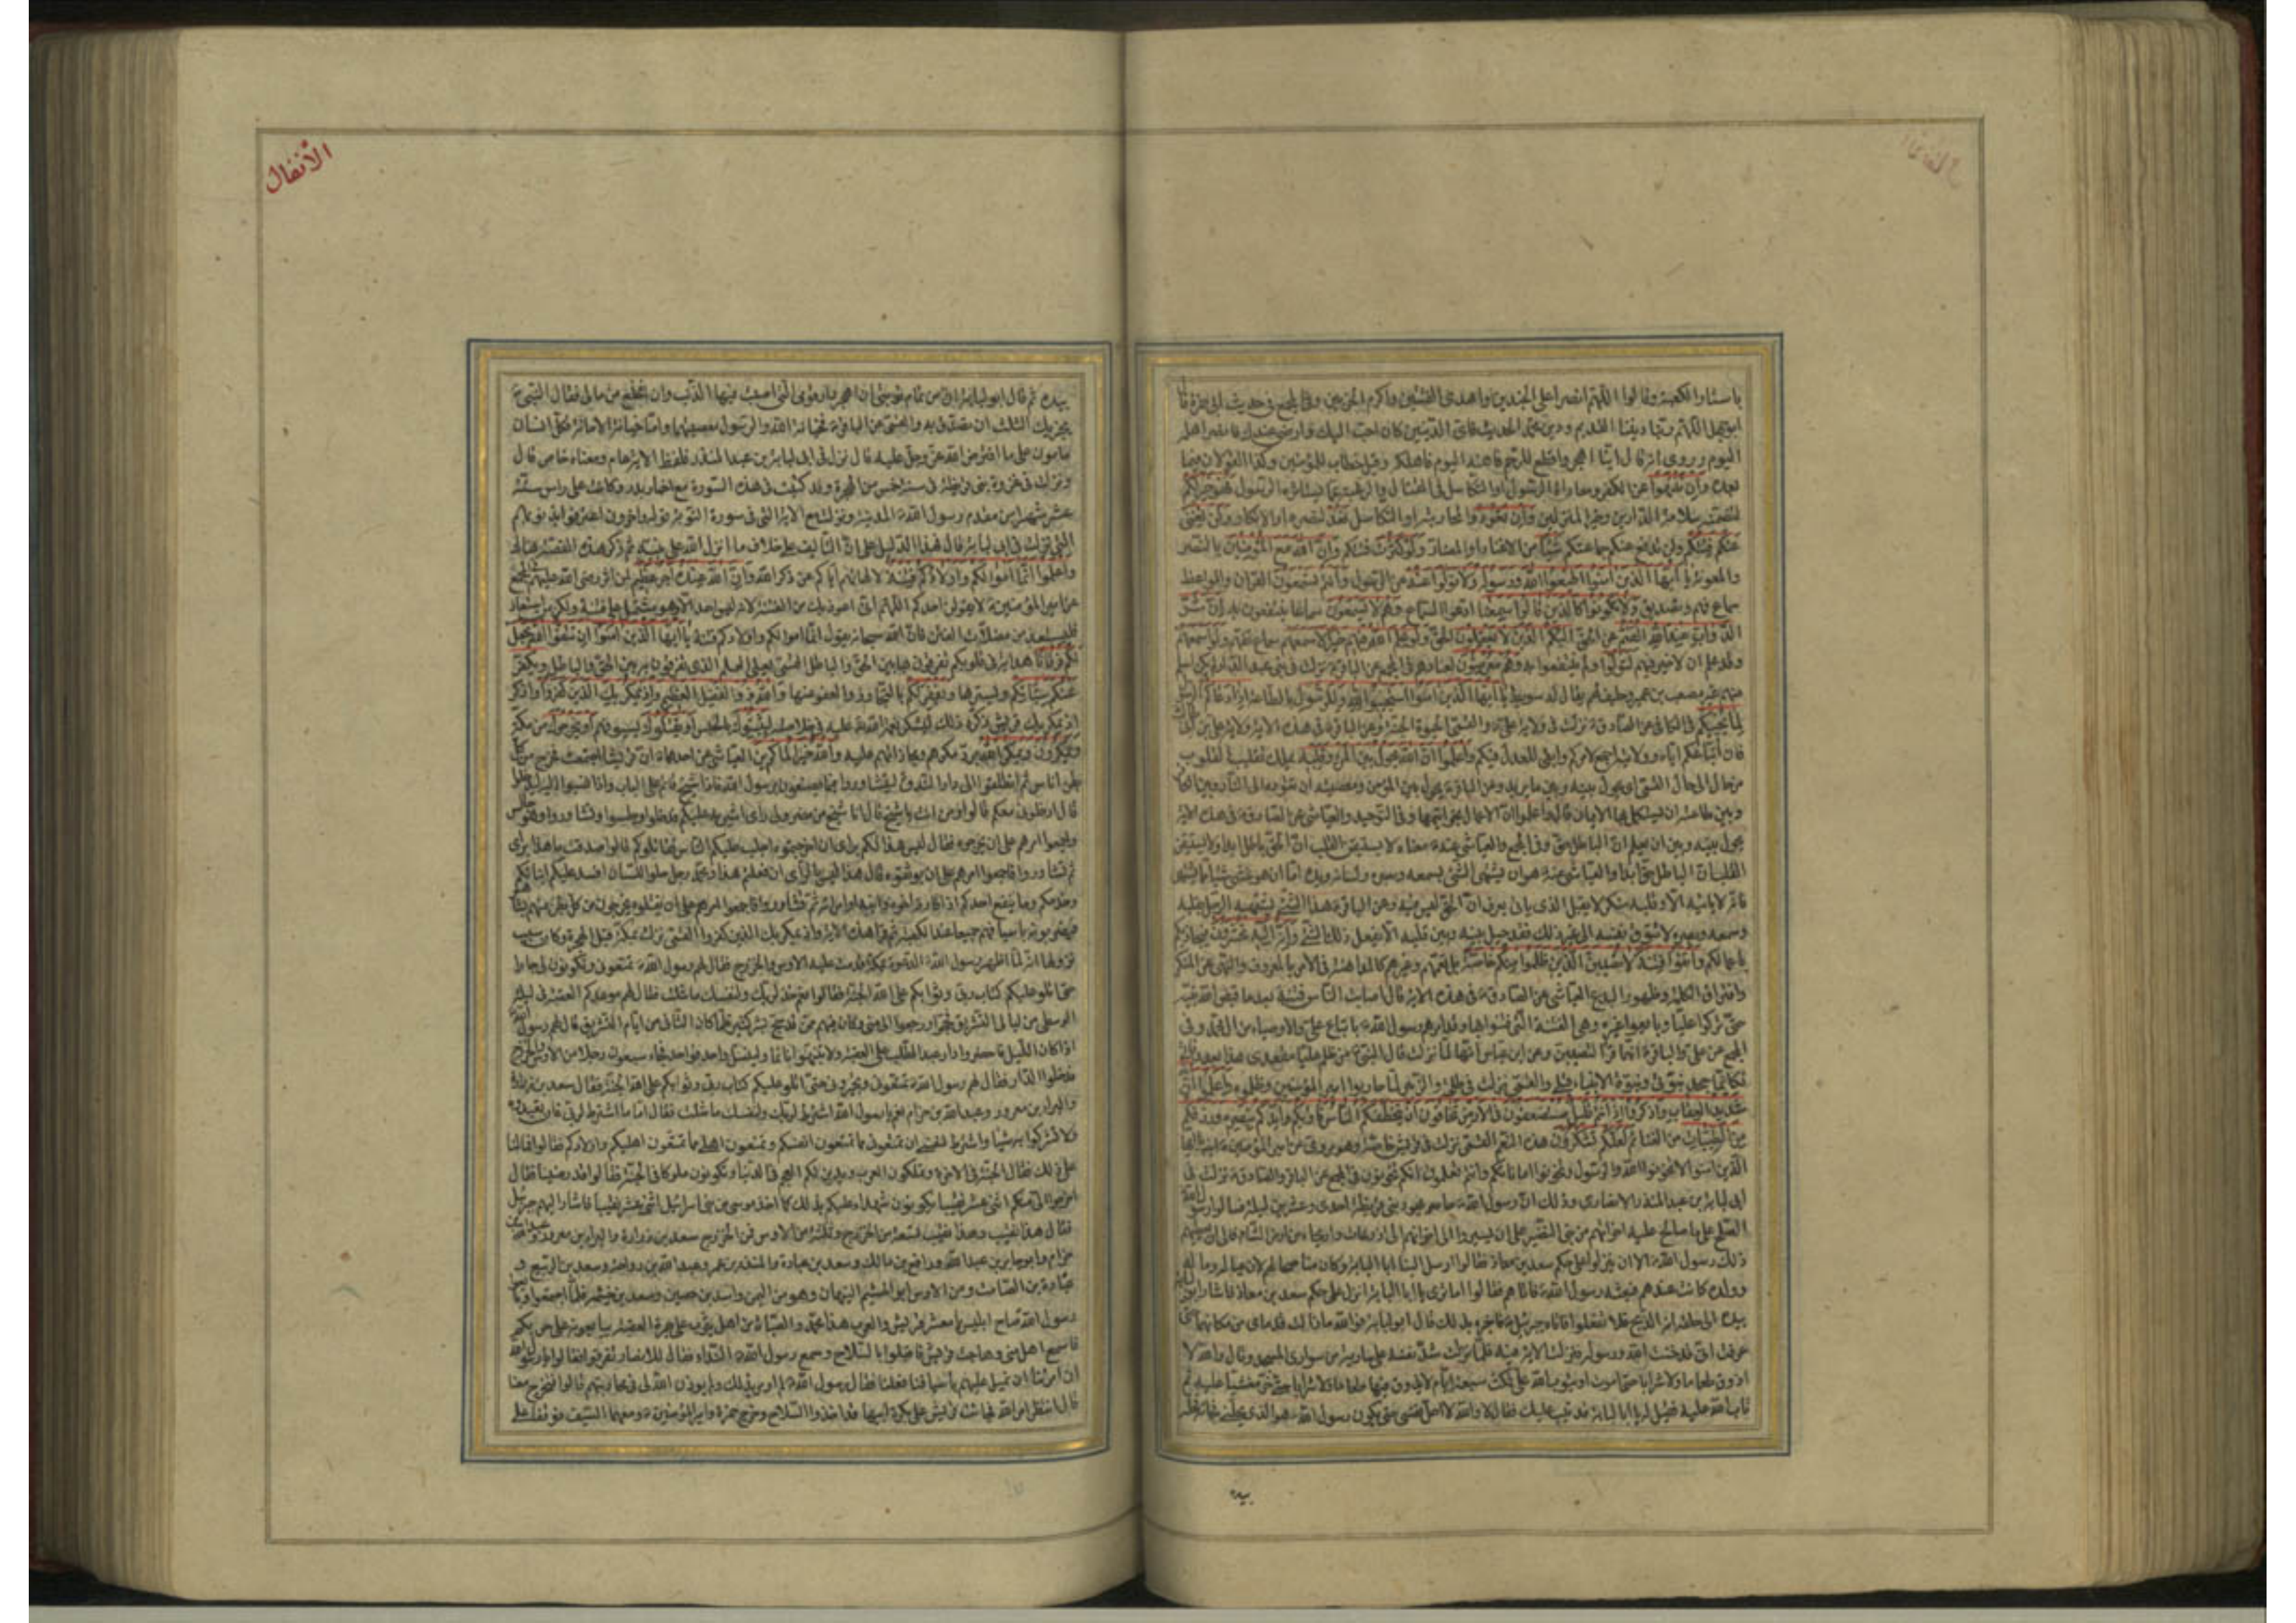 الأنفال
باستار الكعبة وقالوا اللهم انصر اعلى الجندين واهدى الفئتين واكرم الحزبين وفي المجمع في حديث ابى حمزة قال
ابو جهل اللهم ربنا ديننا القديم ودين محمد الحديث فاى الدينين كان احب اليك وارضى عندك فانصر اهله
اليوم وروى انه قال اينا اهجر واقطع للرحم فاهنه اليوم فاهلكه وقيل خطاب للمؤمنين وكذا القولان فيما
بعده وان تنتهوا عن الكفر ومعاداة الرسول او التكاسل في القتال والرغبة عما يستاثره الرسول فهو خير لكم
لتضمنه سلامة الدارين وخير المنزلين وان تعودوا لمحاربته او التكاسل نعد لنصره او الانكار ولن تغنى
عنكم فئتكم ولن تدفع عنكم جماعتكم شيئا من الاغناء او المضار ولو كثرت فئتكم وان الله مع المؤمنين بالنصر
والمعونة يا ايها الذين امنوا اطيعوا الله ورسوله ولا تولوا عنه عن الرسول وانتم تسمعون القران والمواعظ
سماع فهم وتصديق ولا تكونوا كالذين قالوا سمعنا ادعوا السماع وهم لا يسمعون سماعا ينتفعون به ان شر
الدواب عند الله الصم عن الحق البكم الذين لا يعقلون الحق ولو علم الله فيهم خيرا لاسمعهم سماع تفهم ولو اسمعهم
وقد علم ان لا خير فيهم لتولوا ولم ينتفعوا به وهم معرضون لعنادهم في المجمع عن الباقر ع نزلت في بنى عبد الدار لم يكن اسلم
منهم غير مصعب بن عمير وحليف لهم يقال له سويبط يا ايها الذين امنوا استجيبوا لله وللرسول بالطاعة اذا دعاكم الرسول
لما يحييكم في الكافي عن الصادق ع نزلت في ولاية على ع والقمى الحيوة الجنة وعن الباقر ع في هذه الاية ولاية على بن ابى طالب
فان اتباعكم اياه وولايته اجمع لامركم وابقى للعدل فيكم واعلموا ان الله يحول بين المرء وقلبه يملك تقليب القلوب
من حال الى حال القمى اى يحول بينه وبين ما يريد وعن الباقر ع يحول بين المؤمن ومعصيته ان تقوده الى النار وبين الكافر
وبين طاعته ان يستكمل بها الايمان قال واعلموا ان الاعمال بخواتيمها وفي التوحيد والعياشى عن الصادق ع في هذه الاية
يحول بينه وبين ان يعلم ان الباطل حق وفي المجمع والعياشى عنه ع معناه لا يستيقن القلب ان الحق باطل ابدا ولا يستيقن
القلب ان الباطل حق ابدا والعياشى عنه ع هو ان يشتهى الشئ بسمعه وبصره ولسانه ويده اما ان هو غشى شيئا مما يشتهى
فانه لا ياتيه الا وقلبه منكر لا يقبل الذى ياتى يعرف ان الحق ليس فيه وعن الباقر ع هذا الشئ يشتهيه الرجل بقلبه
وسمعه وبصره لا تتوق نفسه الى غير ذلك فقد حيل بينه وبين قلبه الا يفعل ذلك الشئ وانه اليه تحشرون فيجازيكم
باعمالكم واتقوا فتنة لا تصيبن الذين ظلموا منكم خاصة بل تعمهم وغيرهم كالمداهنة في الامر بالمعروف والنهى عن المنكر
وافتراق الكلمة وظهور البدع العياشى عن الصادق ع في هذه الاية قال اصابت الناس فتنة بعد ما قبض الله نبيه
حتى تركوا عليا وبايعوا غيره وهى الفتنة التى فتنوا بها وقد امرهم رسول الله ص باتباع على والاوصياء من ال محمد وفي
المجمع عن على والباقر ع انهما قرءا لتصيبن وعن ابن عباس انها لما نزلت قال النبى ص من ظلم عليا مقعدى هذا بعد وفاتى
فكانما جحد نبوتى ونبوة الانبياء قبلى والقمى نزلت في طلحة والزبير لما حاربوا امير المؤمنين وظلموه واعلموا ان الله
شديد العقاب واذكروا اذ انتم قليل مستضعفون في الارض تخافون ان يتخطفكم الناس فاويكم وايدكم بنصره ورزقكم
من الطيبات من الغنائم لعلكم تشكرون هذه النعم القمى نزلت في قريش خاصة وهو مروى عن امير المؤمنين ع يا ايها
الذين امنوا لا تخونوا الله والرسول وتخونوا اماناتكم وانتم تعلمون انكم تخونون في المجمع عن الباقر والصادق ع نزلت في
ابى لبابة بن عبد المنذر الانصارى وذلك ان رسول الله ص حاصر يهود بنى قريظة احدى وعشرين ليلة فسالوا رسول الله
الصلح على ما صالح عليه اخوانهم من بنى النضير على ان يسيروا الى اخوانهم الى اذرعات واريحاء من ارض الشام فابى ان يعطيهم
ذلك رسول الله ص الا ان ينزلوا على حكم سعد بن معاذ فقالوا ارسل الينا ابا لبابة وكان مناصحا لهم لان عياله وماله
وولده كانت عندهم فبعثه رسول الله ص فاتاهم فقالوا ما ترى يا ابا لبابة اننزل على حكم سعد بن معاذ فاشار ابو لبابة
بيده الى حلقه انه الذبح فلا تفعلوا فاتاه جبرئيل ع فاخبره بذلك قال ابو لبابة فوالله ما زالت قدماى من مكانهما حتى
عرفت انى قد خنت الله ورسوله فنزلت الاية فيه فلما نزلت شد نفسه على سارية من سوارى المسجد وقال والله لا
اذوق طعاما ولا شرابا حتى اموت او يتوب الله على فمكث سبعة ايام لا يذوق فيها طعاما ولا شرابا حتى خر مغشيا عليه ثم
تاب الله عليه فقيل له يا ابا لبابة قد تيب عليك فقال لا والله لا احل نفسى حتى يكون رسول الله ص هو الذى يحلنى فجاءه فحله
بيده
الأنفال
بيده ثم قال ابو لبابة ان من تمام توبتى ان اهجر دار قومى التى اصبت فيها الذنب وان انخلع من مالى فقال النبى ص
يجزيك الثلث ان تصدق به والقمى عن الباقر ع فخيانة الله والرسول معصيتهما واما خيانة الامانة فكل انسان
مامون على ما افترض الله عز وجل عليه قال نزلت في ابى لبابة بن عبد المنذر فلفظ الاية عام ومعناه خاص قال
ونزلت في غزوة بنى قريظة في سنة خمس من الهجرة وقد كتبت في هذه السورة مع اخبار بدر وكانت على راس ستة
عشر شهرا من مقدم رسول الله ص المدينة ونزلت مع الاية التى في سورة التوبة قوله واخرون اعترفوا بذنوبهم
التى نزلت في ابى لبابة قال فهذا الدليل على ان التاليف على خلاف ما انزل الله على نبيه ص ثم ذكر هذه القصة هناك
واعلموا انما اموالكم واولادكم فتنة لالهائهم اياكم عن ذكر الله وان الله عنده اجر عظيم لمن اثر رضى الله عليهم في المجمع
عن امير المؤمنين ع لا يقولن احدكم اللهم انى اعوذ بك من الفتنة لانه ليس احد الا وهو مشتمل على فتنة ولكن من استعاذ
فليستعذ من مضلات الفتن فان الله سبحانه يقول انما اموالكم واولادكم فتنة يا ايها الذين امنوا ان تتقوا الله يجعل
لكم فرقانا هداية في قلوبكم تفرقون بها بين الحق والباطل القمى يعنى العلم الذى تفرقون به بين الحق والباطل ويكفر
عنكم سيئاتكم ويسترها ويغفر لكم بالتجاوز والعفو عنها والله ذو الفضل العظيم واذ يمكر بك الذين كفروا واذكر
اذ يمكر بك قريش ذكره ذلك ليشكر نعمة الله عليه في خلاصه ليثبتوك بالحبس او يقتلوك بسيوفهم او يخرجوك من مكة
ويمكرون ويمكر الله برد مكرهم ومجازاتهم عليه والله خير الماكرين العياشى عن احدهما ع ان قريشا اجتمعت فخرج من كل
بطن اناس ثم انطلقوا الى دار الندوة ليشاوروا فيما يصنعون برسول الله ص فاذا شيخ قائم على الباب واذا ذهبوا اليه ليدخلوا
قال ادخلونى معكم قالوا ومن انت يا شيخ قال انا شيخ من مضر ولى راى اشير به عليكم فدخلوا وجلسوا وتشاوروا وهو جالس
واجمعوا امرهم على ان يخرجوه فقال ليس هذا لكم براى ان اخرجتموه اجلب عليكم الناس فقاتلوكم قالوا صدقت ما هذا براى
ثم تشاوروا فاجمعوا امرهم على ان يوثقوه قال هذا ليس بالراى ان فعلتم هذا ومحمد رجل حلو اللسان افسد عليكم ابناءكم
وخدمكم وما ينفع احدكم اذا فارقه اخوه وابنه او امراته ثم تشاوروا فاجمعوا امرهم على ان يقتلوه يخرجون من كل بطن منهم بشاب
فيضربونه باسيافهم جميعا عند الكعبة ثم قرء هذه الاية واذ يمكر بك الذين كفروا القمى نزلت بمكة قبل الهجرة وكان سبب
نزولها انه لما اظهر رسول الله ص الدعوة بمكة قدمت عليه الاوس والخزرج فقال لهم رسول الله ص تمنعونى وتكونون لى جارا
حتى اتلو عليكم كتاب ربى وثوابكم على الله الجنة فقالوا نعم خذ لربك ولنفسك ما شئت فقال لهم موعدكم العقبة في ليلة
الوسطى من ليالى التشريق فحجوا ورجعوا الى منى وكان فيهم ممن قد حج بشر كثير فلما كان الثانى من ايام التشريق قال لهم رسول الله
اذا كان الليل فاحضروا دار عبد المطلب على العقبة ولا تنبهوا نائما ولينسل واحد فواحد فجاء سبعون رجلا من الاوس والخزرج
فدخلوا الدار فقال لهم رسول الله ص تمنعونى وتجيرونى حتى اتلو عليكم كتاب ربى وثوابكم على الله الجنة فقال سعد بن زرارة
والبراء بن معرور وعبد الله بن حزام نعم يا رسول الله اشترط لربك ولنفسك ما شئت فقال اما ما اشترط لربى فان تعبدوه
ولا تشركوا به شيئا واشترط لنفسى ان تمنعونى مما تمنعون انفسكم وتمنعون اهلى مما تمنعون اهليكم واولادكم فقالوا فمالنا
على ذلك فقال الجنة في الاخرة وتملكون العرب وتدين لكم العجم في الدنيا وتكونون ملوكا في الجنة فقالوا قد رضينا فقال
اخرجوا الى منكم اثنى عشر نقيبا يكونون شهداء عليكم بذلك كما اخذ موسى من بنى اسرائيل اثنى عشر نقيبا فاشار اليهم جبرئيل
فقال هذا نقيب وهذا نقيب تسعة من الخزرج وثلثة من الاوس فمن الخزرج سعد بن زرارة والبراء بن معرور وعبد الله بن
حزام وابو جابر بن عبد الله ورافع بن مالك وسعد بن عبادة والمنذر بن عمر وعبد الله بن رواحة وسعد بن الربيع و
عبادة بن الصامت ومن الاوس ابو الهشيم التيهان وهو من اليمن واسيد بن حصين وسعد بن خيثمة فلما اجتمعوا وبايعوا
رسول الله صاح ابليس يا معشر قريش والعرب هذا محمد والصباة من اهل يثرب على جمرة العقبة يبايعونه على حربكم
فاسمع اهل منى وهاجت قريش فاقبلوا بالسلاح وسمع رسول الله ص النداء فقال للانصار تفرقوا فقالوا يا رسول الله
ان امرتنا ان نميل عليهم باسيافنا فعلنا فقال رسول الله ص لم اومر بذلك ولم يوذن الله لى في محاربتهم قالوا فتخرج معنا
قال انتظر امر الله فجاءت قريش على بكرة ابيها قد اخذوا السلاح وخرج حمزة وامير المؤمنين ع ومعهما السيف فوقفا على